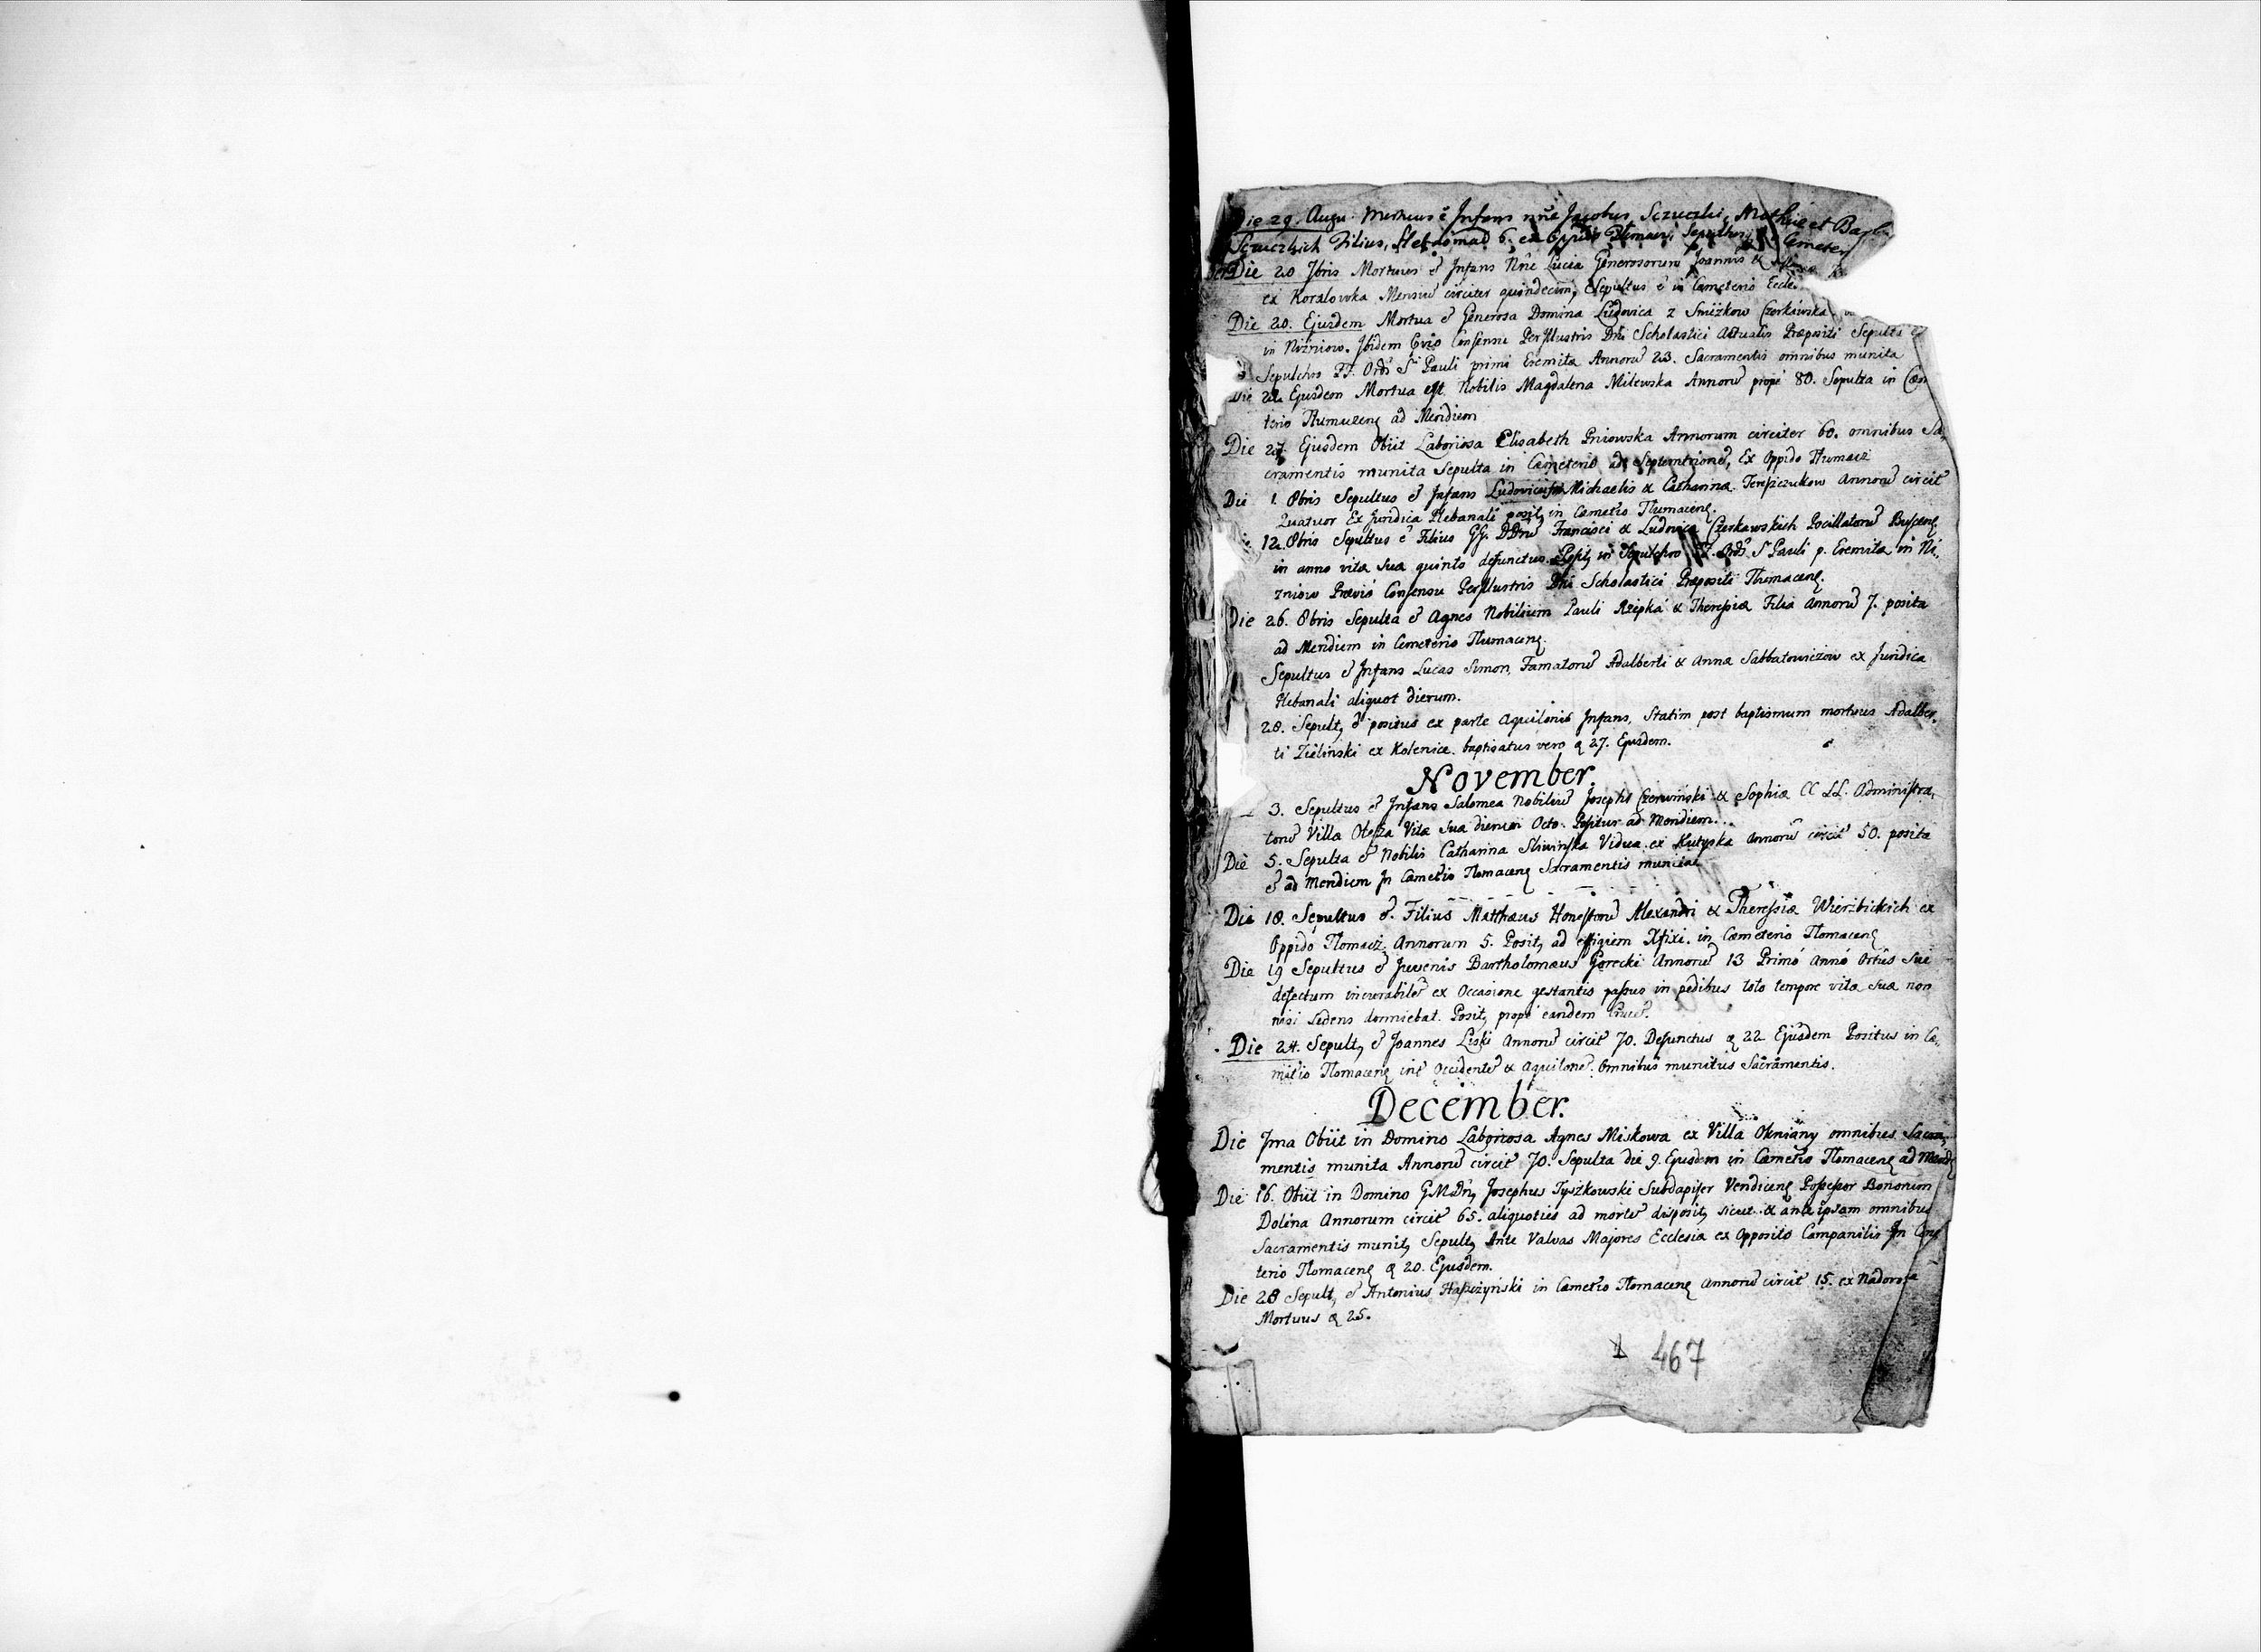 Die 29. Augu. Mortuus ẽ Infans nñe Jacobus Sczuczki, Mathiae et Barb
Sczuczkich Filius, Hebdomad 6. ex Oppido Tłomacz Sepultus Cemeter
Die 20 7bris Mortuus ẽ Infans Nñe Lucia Generosorum Joannis &
ex Korolowka Mensiũ circiter quindecim, Sepultus ẽ in Cameterio Eccle.
Die 20. Ejusdem Mortua ẽ Generosa Domina Ludovica z Sniżkow Czerkáwska
in Niżniow. Ibidem Pvio Consensu Perillustris Dñi Scholastici Actualis Præpositi Sepulta ẽ
Sepulchro PP. Ordĩ S Pauli primi Eremitæ Annorũ 23. Sacramentis omnibus munita
Die 22 Ejusdem Mortua est Nobilis Magdalena Milewska Annorũ propè 80. Sepulta in Cæm
terio Tłumacenς ad Meridiem
Die 27. Ejusdem Obiit Laboriosa Elisabeth Pniowska Annorum circiter 60. omnibus Sa,
cramentis munita Sepulta in Cæmeterio ad Septemtrionẽ, Ex Oppido Tłumacz
Die 1. 8bris Sepultus ẽ Infans Ludovicus Michaelis & Catharinæ Terepczukow Annorũ circit̃
Quatuor Ex Juridica Plebanali posit, in Cametrio Tłumacenς.
12. 8bris Sepultus ẽ Filius GG. DDnũ Francisci & Ludovica Czerkawskich Pocillatorũ Buscenς
in anno vitæ suæ quinto defunctus. Posit, in Sepulchro PP. Ordĩ S Pauli p. Eremitæ in Ni,
zniow Prævió Consensu Perillustris Dñi Scholastici Præpositi Tłumacenς.
Die 26. 8bris Sepulta ẽ Agnes Nobilium Pauli Rzepka & Theresiæ Filia Annorũ 7. posita
ad Meridiem in Cemeterio Tłumacenς.
Sepultus ẽ Infans Lucas Simon, Famatorũ Adalberti & Annæ Sabbatowiczow ex Juridica
Plebanali aliquot dierum.
28. Sepult, ẽ positus ex parte Aquilonis Infans, Statim post baptismum mortuus Adalber,
ti Zieliński ex Kolenice. baptisatus vero ą 27. Ejusdem.
November.
3. Sepultus ẽ Infans Salomea Nobiliũ Josephi Czerwiński & Sophiæ CC LL. Administra,
torũ Villæ Olesza Vitæ suæ dierum Octo. Positur ad Meridiem.
Die 5. Sepulta ẽ Nobilis Catharina Sliwińska Vidua ex Hutyska Annorũ circit̃ 50. posita
ẽ ad Meridiem In Cametrio Tłomacenς Sacramentis munita
Die 18. Sepultus ẽ. Filius Matthæus Honestorũ Alexandri & Theressiæ Wierzbickich ex
Oppido Tłomacz Annorum 5. Posit, ad effigiem Xfixi. in Cæmeterio Tłomacenς
Die 19 Sepultus ẽ Juvenis Bartholomæus Gorecki Annorũ 13 Primó anno Ortûs sui
defectum incurabilẽ ex Occasione gestantis passus in pedibus toto tempore vitæ suæ non
nisi sedens dormiebat. Posit, propè eandem crucẽ.
Die 24. Sepult, ẽ Joannes Liski Annorũ circit̃ 70. Defunctus ą 22 Ejusdem Positus in Cæ,
mitrio Tłomacenς int̃ Occidentẽ & Aquilonẽ. Omnibus munitus Sacramentis.
December.
Die 7ma Obiit in Domino Laboriosa Agnes Miskowa ex Villa Okniany omnibus Sacra,
mentis munita Annorũ circit̃ 70. Sepulta die 9. Ejusdem in Cametrio Tłomacenς ad Merid
Die 16. Obiit in Domino G.M.Dñ, Josephus Tyszkowski Subdapifer Vendicenς Possessor Bonorum
Dolina Annorum circit̃ 65. aliquoties ad mortẽ disposit, sicut & ante ipsam omnibus
Sacramentis munit, Sepult, Ante Valvas Majores Ecclesiæ ex Opposito Campanilis In Cæme
terio Tłomacenς ą 20. Ejusdem.
Die 28 Sepult, ẽ Antonius Haszczyński in Cametrio Tłomacenς Annorũ circit̃ 15. ex Nadoroze
Mortuus ą 25.
1 467